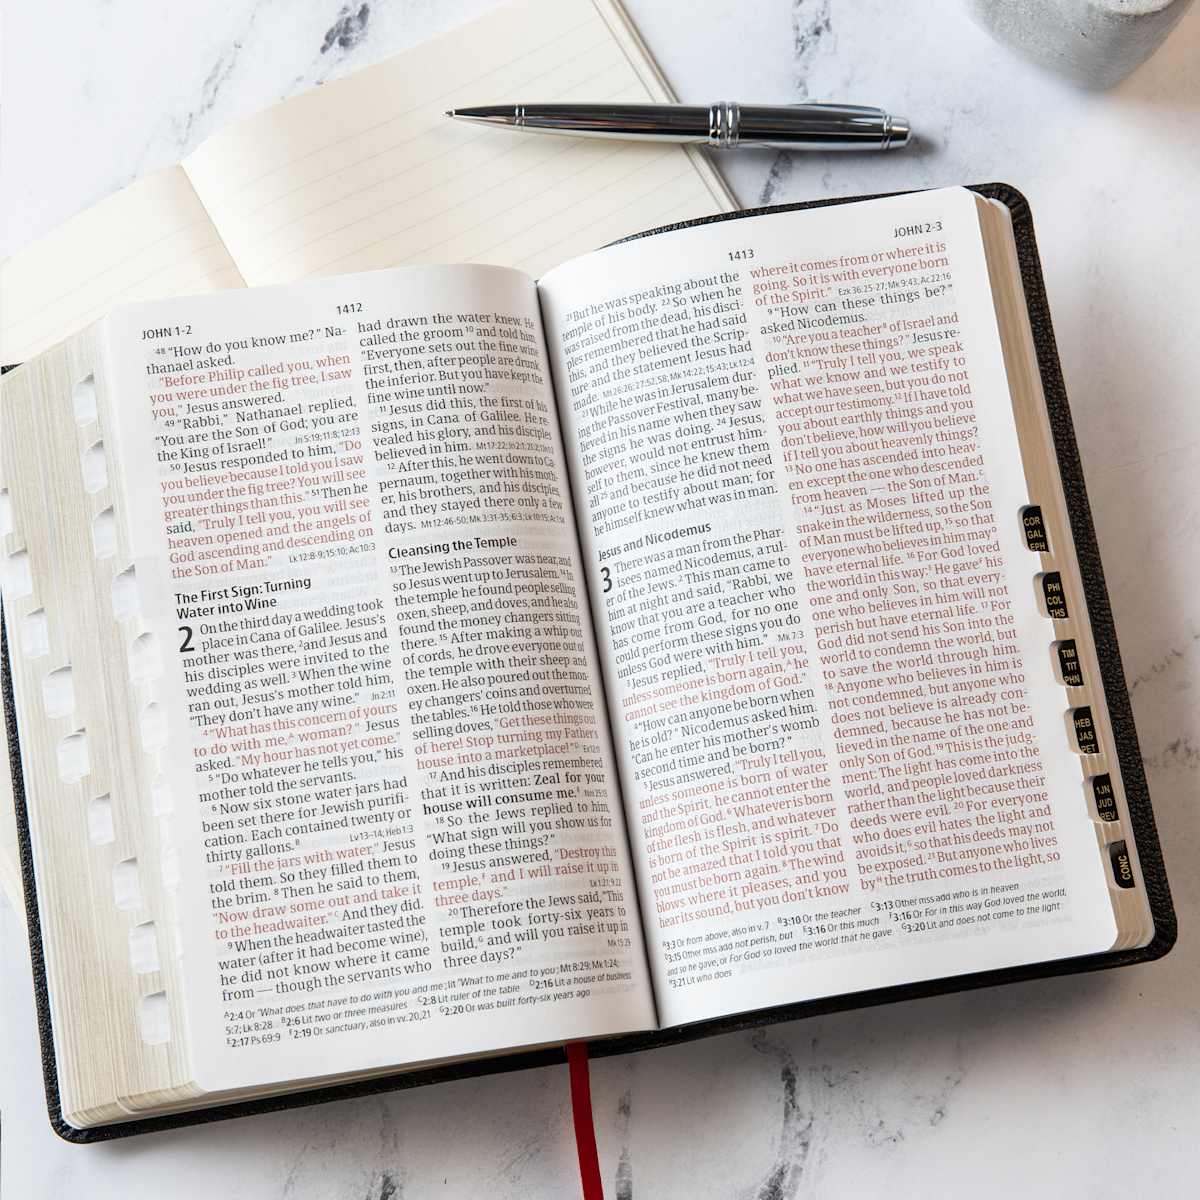 JOHN 1-2
1412
48 “How do you know me?” Na-
thanael asked.
“Before Philip called you, when
you were under the fig tree, I saw
you,” Jesus answered.
49 “Rabbi,” Nathanael replied,
“You are the Son of God; you are
the King of Israel!” Jn 5:19; 11:8; 12:13
50 Jesus responded to him, “Do
you believe because I told you I saw
you under the fig tree? You will see
greater things than this.” 51 Then he
said, “Truly I tell you, you will see
heaven opened and the angels of
God ascending and descending on
the Son of Man.” Lk 12:8-9; 15:10; Ac 10:3
The First Sign: Turning
Water into Wine
2 On the third day a wedding took
place in Cana of Galilee. Jesus’s
mother was there, 2 and Jesus and
his disciples were invited to the
wedding as well. 3 When the wine
ran out, Jesus’s mother told him,
“They don’t have any wine.” Jn 2:11
4 “What has this concern of yours
to do with me,A woman?” Jesus
asked. “My hour has not yet come.”
5 “Do whatever he tells you,” his
mother told the servants.
6 Now six stone water jars had
been set there for Jewish purifi-
cation. Each contained twenty or
thirty gallons.B Lv 13–14; Heb 1:3
7 “Fill the jars with water,” Jesus
told them. So they filled them to
the brim. 8 Then he said to them,
“Now draw some out and take it
to the headwaiter.”C And they did.
9 When the headwaiter tasted the
water (after it had become wine),
he did not know where it came
from — though the servants who
had drawn the water knew. He
called the groom 10 and told him,
“Everyone sets out the fine wine
first, then, after people are drunk,
the inferior. But you have kept the
fine wine until now.”
11 Jesus did this, the first of his
signs, in Cana of Galilee. He re-
vealed his glory, and his disciples
believed in him.
12 After this, he went down to Ca-
pernaum, together with his moth-
er, his brothers, and his disciples,
and they stayed there only a few
days. Mt 12:46-50; Mk 3:31-35; 6:3; Lk 10:15; Ac 1:14
Cleansing the Temple
13 The Jewish Passover was near, and
so Jesus went up to Jerusalem. 14 In
the temple he found people selling
oxen, sheep, and doves, and he also
found the money changers sitting
there. 15 After making a whip out
of cords, he drove everyone out of
the temple with their sheep and
oxen. He also poured out the mon-
ey changers’ coins and overturned
the tables. 16 He told those who were
selling doves, “Get these things out
of here! Stop turning my Father’s
house into a marketplace!”D
17 And his disciples remembered
that it is written: Zeal for your
house will consume me.E
18 So the Jews replied to him,
“What sign will you show us for
doing these things?”
19 Jesus answered, “Destroy this
temple,F and I will raise it up in
three days.”
20 Therefore the Jews said, “This
temple took forty-six years to
build,G and will you raise it up in
three days?” Mk 15:29
A 2:4 Or “What does that have to do with you and me; lit “What to me and to you; Mt 8:29; Mk 1:24;
5:7; Lk 8:28 B 2:6 Lit two or three measures C 2:8 Lit ruler of the table D 2:16 Lit a house of business
E 2:17 Ps 69:9 F 2:19 Or sanctuary, also in vv. 20,21 G 2:20 Or was built forty-six years ago
1413
JOHN 2-3
21 But he was speaking about the
temple of his body. 22 So when he
was raised from the dead, his disci-
ples remembered that he had said
this, and they believed the Scrip-
ture and the statement Jesus had
made. Mt 26:26-27,52,58; Mk 14:22; 15:43; Lk 12:4
23 While he was in Jerusalem dur-
ing the Passover Festival, many be-
lieved in his name when they saw
the signs he was doing. 24 Jesus,
however, would not entrust him-
self to them, since he knew them
all 25 and because he did not need
anyone to testify about man; for
he himself knew what was in man.
Jesus and Nicodemus
3 There was a man from the Phar-
isees named Nicodemus, a rul-
er of the Jews. 2 This man came to
him at night and said, “Rabbi, we
know that you are a teacher who
has come from God, for no one
could perform these signs you do
unless God were with him.” Mk 7:3
3 Jesus replied, “Truly I tell you,
unless someone is born again,A he
cannot see the kingdom of God.”
4 “How can anyone be born when
he is old?” Nicodemus asked him.
“Can he enter his mother’s womb
a second time and be born?”
5 Jesus answered, “Truly I tell you,
unless someone is born of water
and the Spirit, he cannot enter the
kingdom of God. 6 Whatever is born
of the flesh is flesh, and whatever
is born of the Spirit is spirit. 7 Do
not be amazed that I told you that
you must be born again. 8 The wind
blows where it pleases, and you
hear its sound, but you don’t know
where it comes from or where it is
going. So it is with everyone born
of the Spirit.” Ezk 36:25-27; Mk 9:43; Ac 22:16
9 “How can these things be?”
asked Nicodemus.
10 “Are you a teacherB of Israel and
don’t know these things?” Jesus re-
plied. 11 “Truly I tell you, we speak
what we know and we testify to
what we have seen, but you do not
accept our testimony. 12 If I have told
you about earthly things and you
don’t believe, how will you believe
if I tell you about heavenly things?
13 No one has ascended into heav-
en except the one who descended
from heaven — the Son of Man.C
14 “Just as Moses lifted up the
snake in the wilderness, so the Son
of Man must be lifted up, 15 so that
everyone who believes in him mayD
have eternal life. 16 For God loved
the world in this way:E He gaveF his
one and only Son, so that every-
one who believes in him will not
perish but have eternal life. 17 For
God did not send his Son into the
world to condemn the world, but
to save the world through him.
18 Anyone who believes in him is
not condemned, but anyone who
does not believe is already con-
demned, because he has not be-
lieved in the name of the one and
only Son of God. 19 This is the judg-
ment: The light has come into the
world, and people loved darkness
rather than the light because their
deeds were evil. 20 For everyone
who does evil hates the light and
avoids it,G so that his deeds may not
be exposed. 21 But anyone who lives
byH the truth comes to the light, so
A 3:3 Or from above, also in v. 7 B 3:10 Or the teacher C 3:13 Other mss add who is in heaven
D 3:15 Other mss add not perish, but E 3:16 Or this much F 3:16 Or For in this way God loved the world,
and so he gave, or For God so loved the world that he gave G 3:20 Lit and does not come to the light
H 3:21 Lit who does
COR
GAL
EPH
PHI
COL
THS
TIM
TIT
PHN
HEB
JAS
PET
1JN
JUD
REV
CONC